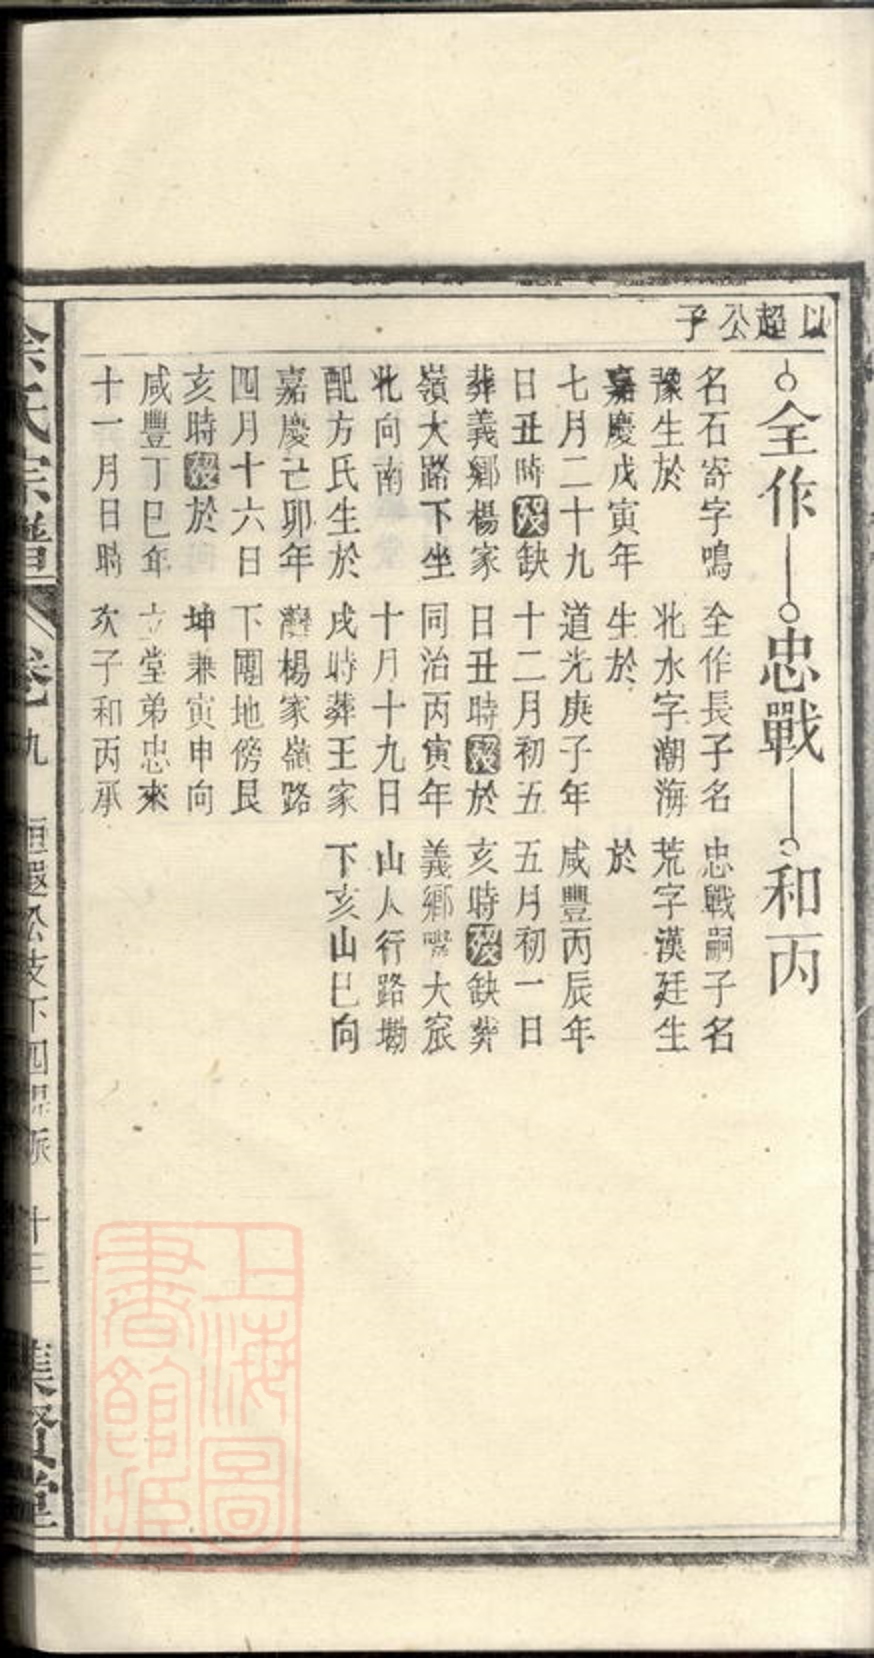 以超公子
全作 忠戰 和丙
名石寄字鳴
豫生於
嘉慶戊寅年
七月二十九
日丑時歿缺
葬義鄉楊家
嶺大路下坐
北向南
配方氏生於
嘉慶己卯年
四月十六日
亥時歿於
咸豐丁巳年
十一月日時
全作長子名
兆水字潮海
生於
道光庚子年
十二月初五
日丑時歿於
同治丙寅年
十月十九日
戌時葬王家
灣楊家嶺路
下園地傍艮
坤兼寅申向
立堂弟忠來
次子和丙承
忠戰嗣子名
荒字漢廷生
於
咸豐丙辰年
五月初一日
亥時歿缺葬
義鄉大窊
山人行路塝
下亥山巳向
余氏宗譜 卷九 恒遐公支下四 派 十三 集賢堂
上海圖書館藏